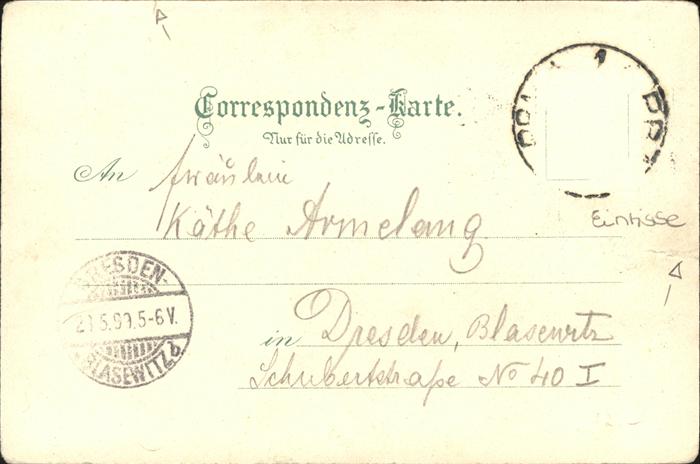 Correspondenz-Karte.
Nur für die Adresse.
An Fräulein
Käthe Armelang
Einrisse
in Dresden, Blasewitz
Schubertstraße No 40 I
DRESDEN-
5-6V.
BLASEWITZ